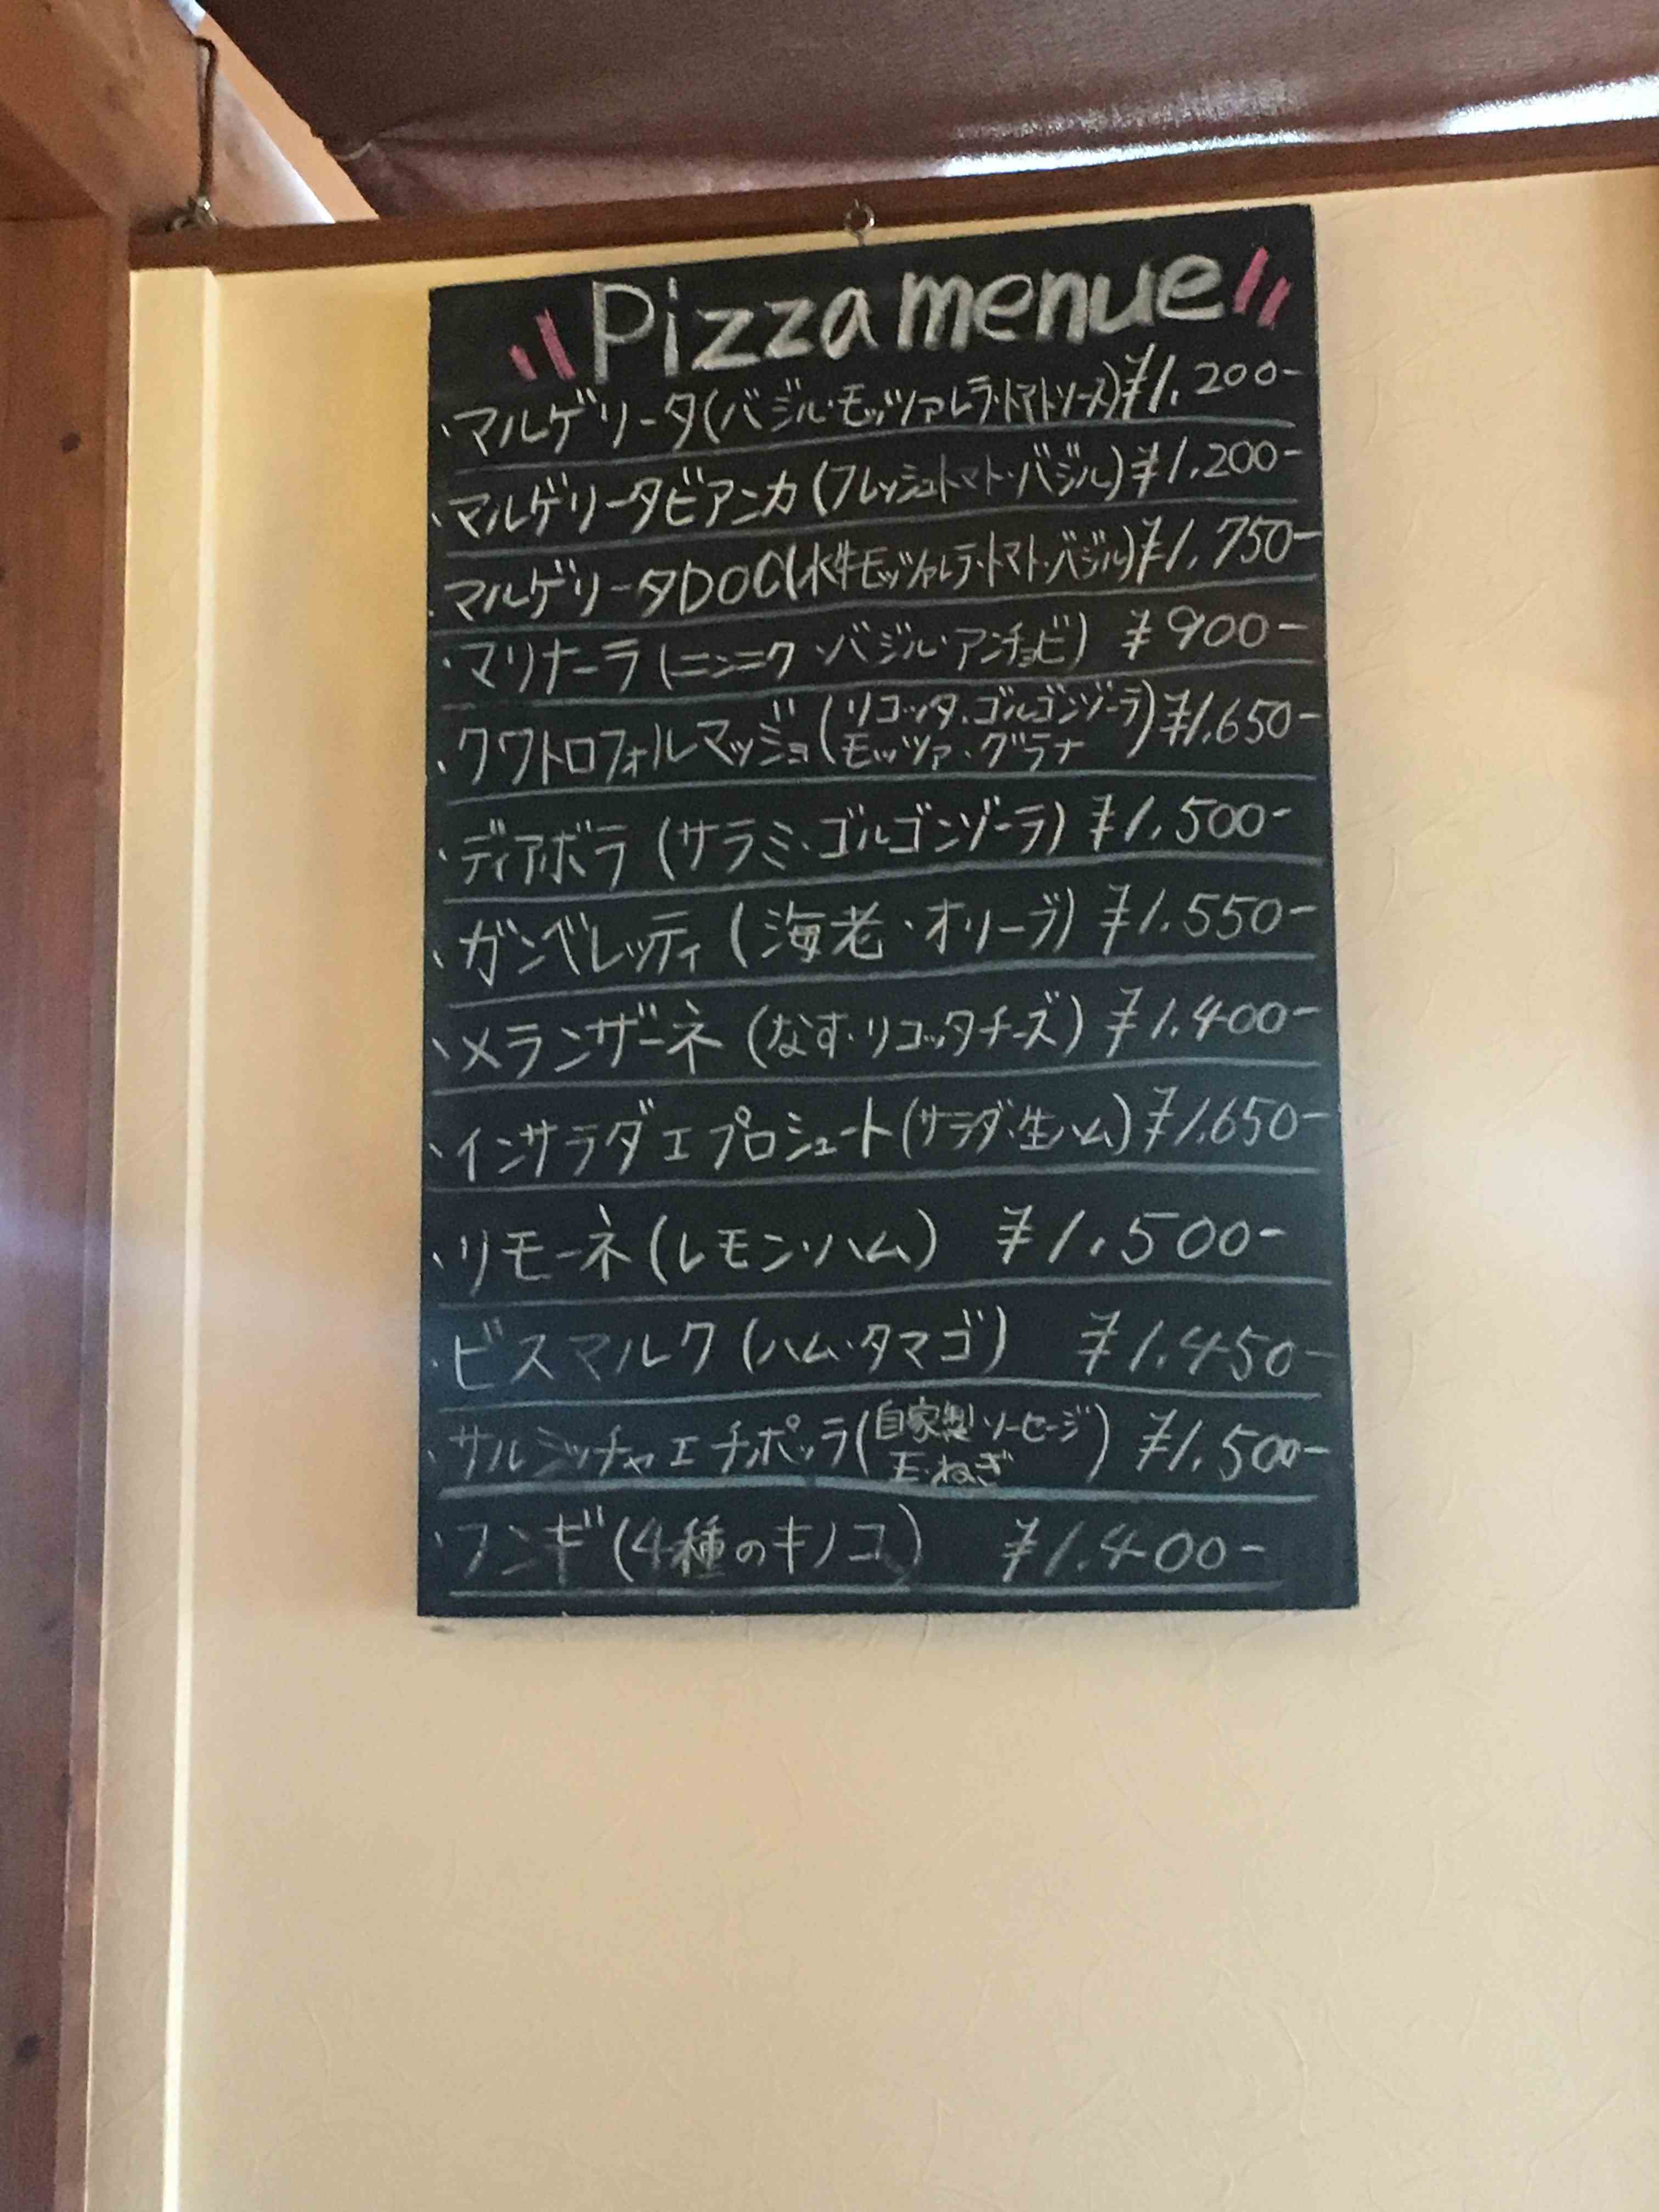 Pizza menue
・マルゲリータ(バジル・モッツァレラ・トマトソース)¥1.200-
・マルゲリータビアンカ(フレッシュトマト・バジル)¥1.200-
・マルゲリータDOC(水牛モッツァレラ・トマト・バジル)¥1.750-
・マリナーラ(ニンニク・バジル・アンチョビ) ¥900-
・クワトロフォルマッジョ(リコッタ・ゴルゴンゾーラ
モッツァ・グラナ)¥1.650-
・ディアボラ(サラミ・ゴルゴンゾーラ)¥1.500-
・ガンベレッティ(海老・オリーブ)¥1.550-
・メランザーネ(なす・リコッタチーズ)¥1.400-
・インサラダエプロシュート(サラダ・生ハム)¥1.650-
・リモーネ(レモン・ハム) ¥1.500-
・ビスマルク(ハム・タマゴ) ¥1.450-
・サルシッチャエチポッラ(自家製ソーセージ
玉ねぎ)¥1.500-
・フンギ(4種のキノコ) ¥1.400-